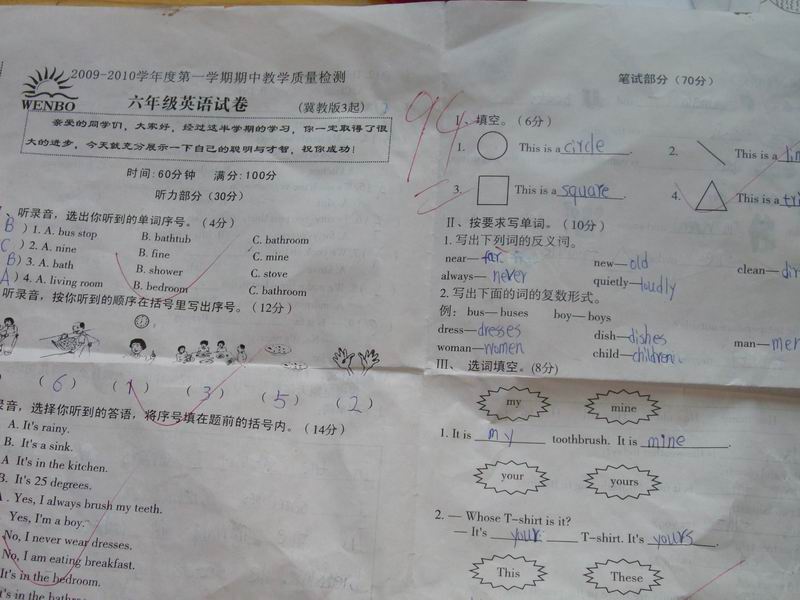 2009-2010学年度第一学期期中教学质量检测
WENBO
六年级英语试卷 (冀教版3起)
亲爱的同学们，大家好，经过这半学期的学习，你一定取得了很
大的进步，今天就充分展示一下自己的聪明与才智，祝你成功！
时间：60分钟 满分：100分
听力部分（30分）
、听录音，选出你听到的单词序号。（4分）
B ) 1. A. bus stop B. bathtub C. bathroom
C ) 2. A. nine B. fine C. mine
B ) 3. A. bath B. shower C. stove
A ) 4. A. living room B. bedroom C. bathroom
听录音，按你听到的顺序在括号里写出序号。（12分）
) ( 6 ) ( 1 ) ( 3 ) ( 5 ) ( 2 )
录音，选择你听到的答语，将序号填在题前的括号内。（14分）
A. It's rainy.
B. It's a sink.
A It's in the kitchen.
B. It's 25 degrees.
. Yes, I always brush my teeth.
Yes, I'm a boy.
No, I never wear dresses.
No, I am eating breakfast.
It's in the bedroom.
94
笔试部分（70分）
I、填空。（6分）
1. This is a circle . 2. This is a
3. This is a square . 4. This is a
II、按要求写单词。（10分）
1. 写出下列词的反义词。
near— far new— old clean—
always— never quietly— loudly
2. 写出下面的词的复数形式。
例： bus— buses boy— boys
dress— dresses dish— dishes man— men
woman— women child— children
III、 选词填空。(8分)
my mine
1. It is my toothbrush. It is mine .
your yours
2. — Whose T-shirt is it?
— It's your T-shirt. It's yours .
This These